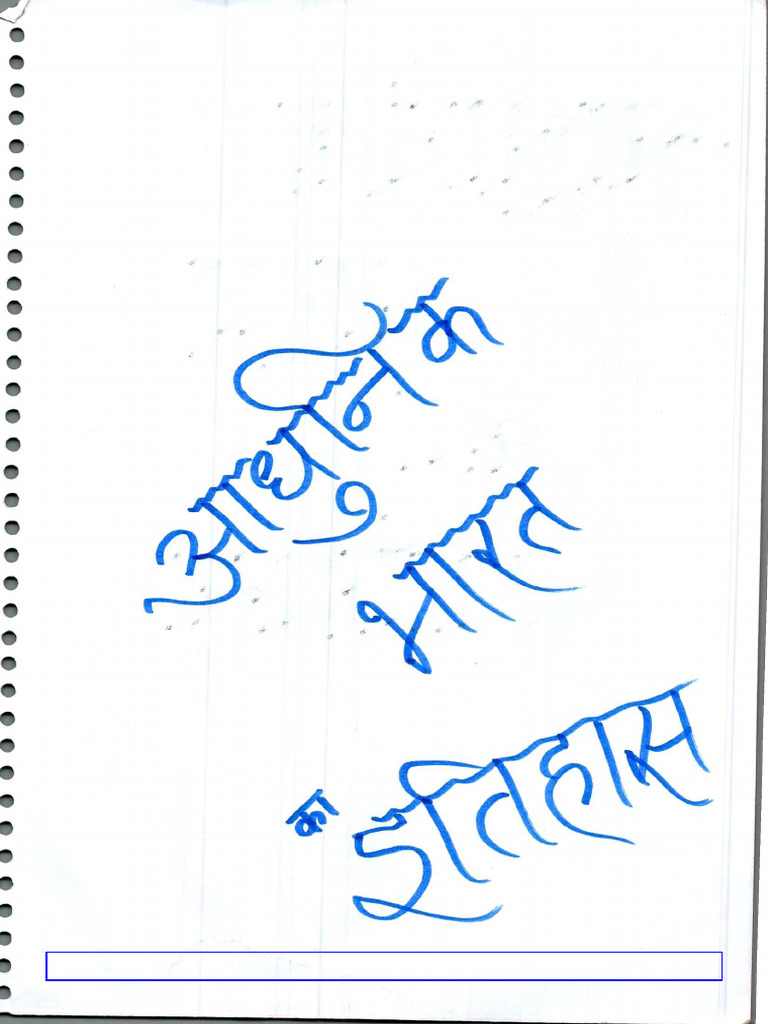 आधुनिक
भारत
का इतिहास